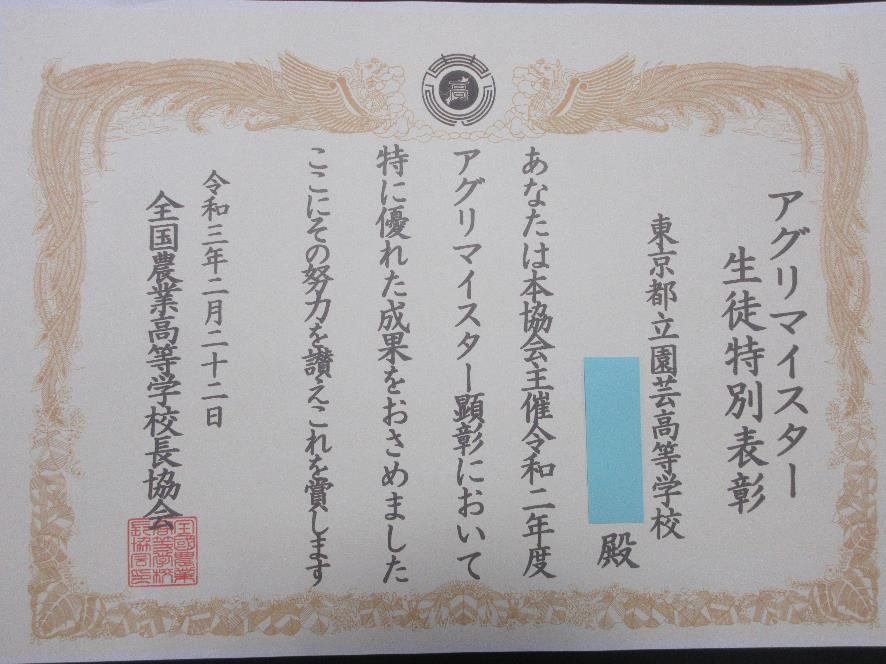 高
アグリマイスター
生徒特別表彰
東京都立園芸高等学校
殿
あなたは本協会主催令和二年度
アグリマイスター顕彰において
特に優れた成果をおさめました
ここにその努力を讃えこれを賞します
令和三年二月二十二日
全国農業高等学校長協会
全國農業
高等学校
長協会印